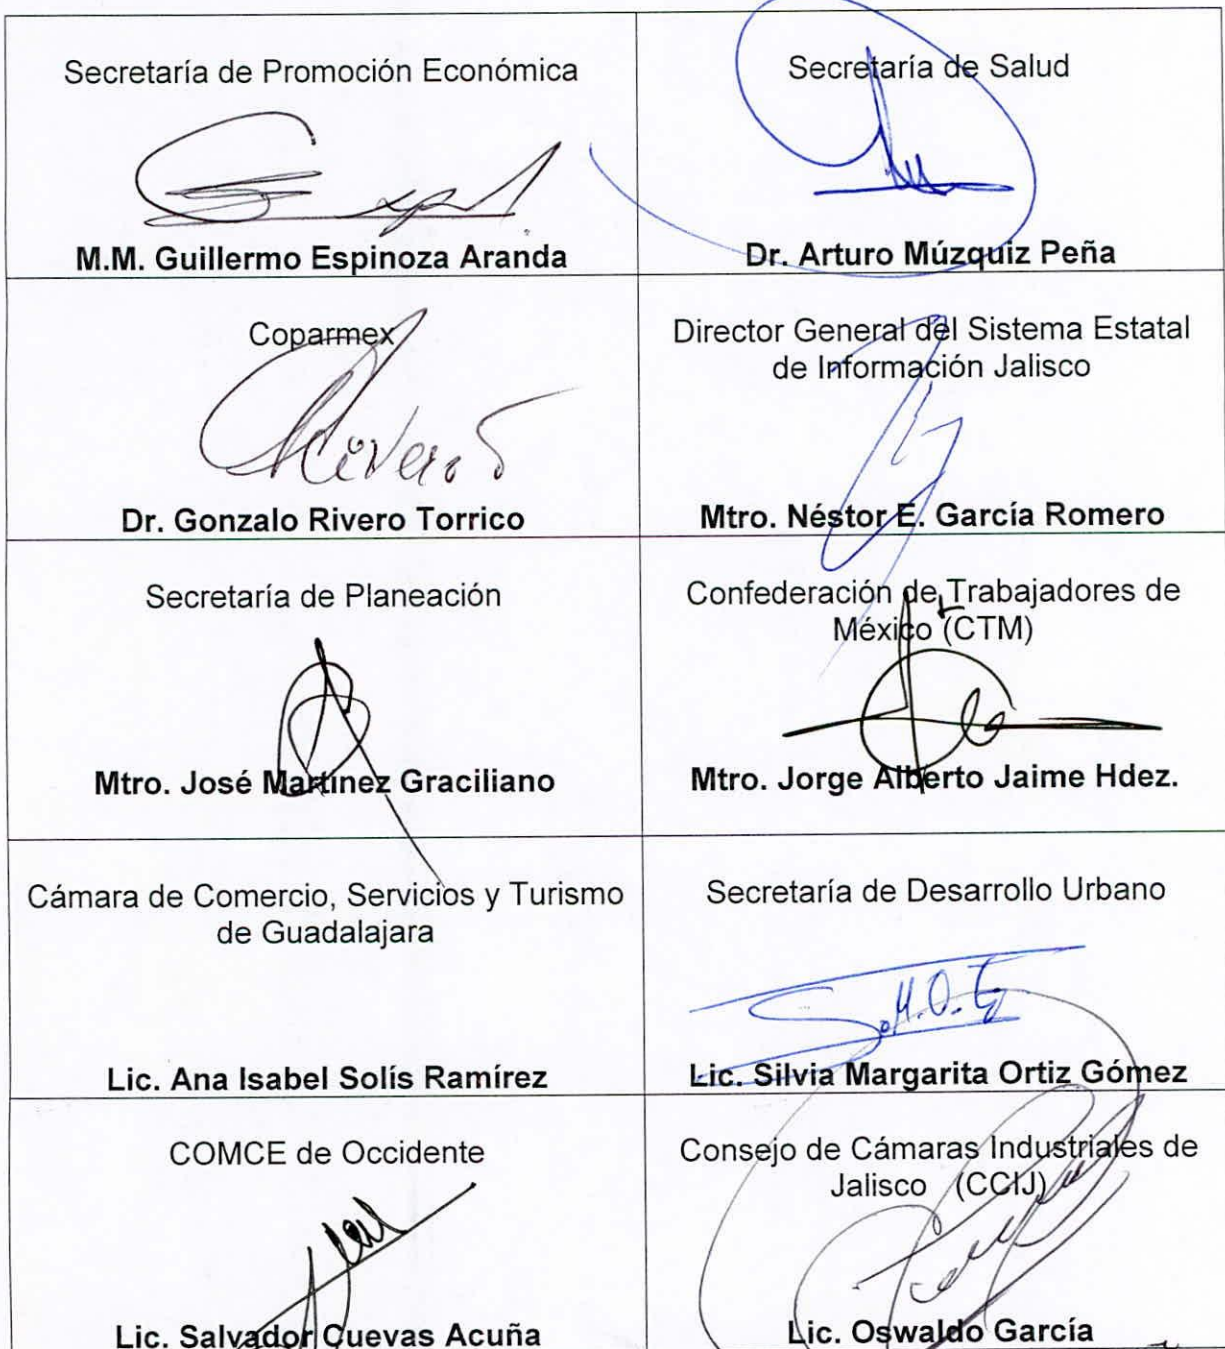 Secretaría de Promoción Económica
M.M. Guillermo Espinoza Aranda
Secretaría de Salud
Dr. Arturo Múzquiz Peña
Coparmex
Rivero
Dr. Gonzalo Rivero Torrico
Director General del Sistema Estatal
de Información Jalisco
Mtro. Néstor E. García Romero
Secretaría de Planeación
Mtro. José Martínez Graciliano
Confederación de Trabajadores de
México (CTM)
Mtro. Jorge Alberto Jaime Hdez.
Cámara de Comercio, Servicios y Turismo
de Guadalajara
Lic. Ana Isabel Solís Ramírez
Secretaría de Desarrollo Urbano
S.M.O.G
Lic. Silvia Margarita Ortiz Gómez
COMCE de Occidente
Lic. Salvador Cuevas Acuña
Consejo de Cámaras Industriales de
Jalisco (CCIJ)
Lic. Oswaldo García